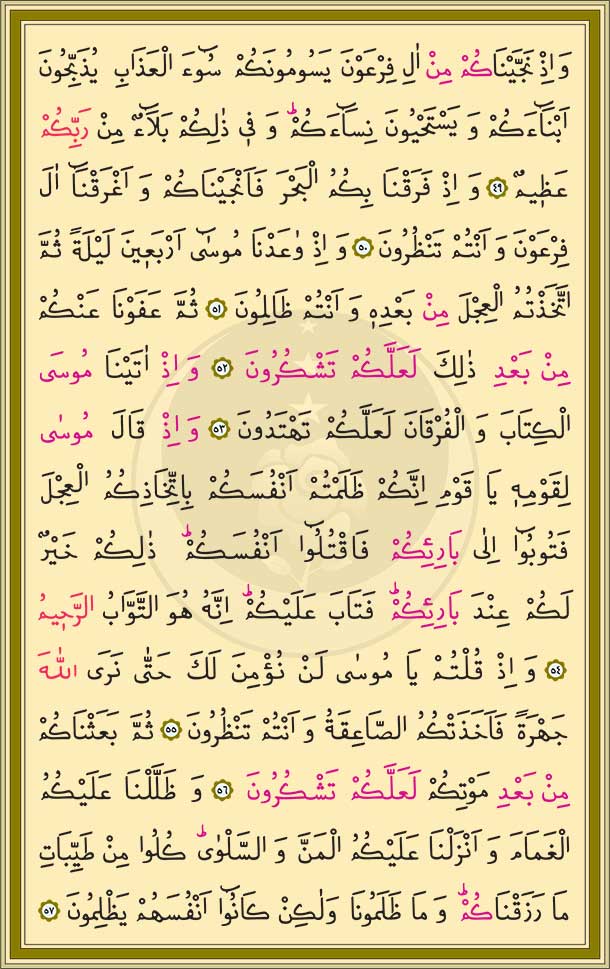 وَ اِذْ نَجَّيْنَاكُمْ مِنْ اٰلِ فِرْعَوْنَ يَسُومُونَكُمْ سُوٓءَ الْعَذَابِ يُذَبِّحُونَ
اَبْنَٓاءَكُمْ وَ يَسْتَحْيُونَ نِسَٓاءَكُمْۜ وَ فٖي ذٰلِكُمْ بَلَٓاءٌ مِنْ رَبِّكُمْ
عَظٖيمٌ ﴿٤٩﴾ وَ اِذْ فَرَقْنَا بِكُمُ الْبَحْرَ فَاَنْجَيْنَاكُمْ وَ اَغْرَقْنَٓا اٰلَ
فِرْعَوْنَ وَ اَنْتُمْ تَنْظُرُونَ ﴿٥٠﴾ وَ اِذْ وٰعَدْنَا مُوسٰٓى اَرْبَعٖينَ لَيْلَةً ثُمَّ
اتَّخَذْتُمُ الْعِجْلَ مِنْ بَعْدِهٖ وَ اَنْتُمْ ظَالِمُونَ ﴿٥١﴾ ثُمَّ عَفَوْنَا عَنْكُمْ
مِنْ بَعْدِ ذٰلِكَ لَعَلَّكُمْ تَشْكُرُونَ ﴿٥٢﴾ وَ اِذْ اٰتَيْنَا مُوسَى
الْكِتَابَ وَ الْفُرْقَانَ لَعَلَّكُمْ تَهْتَدُونَ ﴿٥٣﴾ وَ اِذْ قَالَ مُوسٰى
لِقَوْمِهٖ يَا قَوْمِ اِنَّكُمْ ظَلَمْتُمْ اَنْفُسَكُمْ بِاتِّخَاذِكُمُ الْعِجْلَ
فَتُوبُٓوا اِلٰى بَارِئِكُمْ فَاقْتُلُٓوا اَنْفُسَكُمْۜ ذٰلِكُمْ خَيْرٌ
لَكُمْ عِنْدَ بَارِئِكُمْۜ فَتَابَ عَلَيْكُمْۜ اِنَّهُ هُوَ التَّوَّابُ الرَّحٖيمُ
﴿٥٤﴾ وَ اِذْ قُلْتُمْ يَا مُوسٰى لَنْ نُؤْمِنَ لَكَ حَتّٰى نَرَى اللّٰهَ
جَهْرَةً فَاَخَذَتْكُمُ الصَّاعِقَةُ وَ اَنْتُمْ تَنْظُرُونَ ﴿٥٥﴾ ثُمَّ بَعَثْنَاكُمْ
مِنْ بَعْدِ مَوْتِكُمْ لَعَلَّكُمْ تَشْكُرُونَ ﴿٥٦﴾ وَ ظَلَّلْنَا عَلَيْكُمُ
الْغَمَامَ وَ اَنْزَلْنَا عَلَيْكُمُ الْمَنَّ وَ السَّلْوٰىۜ كُلُوا مِنْ طَيِّبَاتِ
مَا رَزَقْنَاكُمْۜ وَ مَا ظَلَمُونَا وَلٰكِنْ كَانُٓوا اَنْفُسَهُمْ يَظْلِمُونَ ﴿٥٧﴾